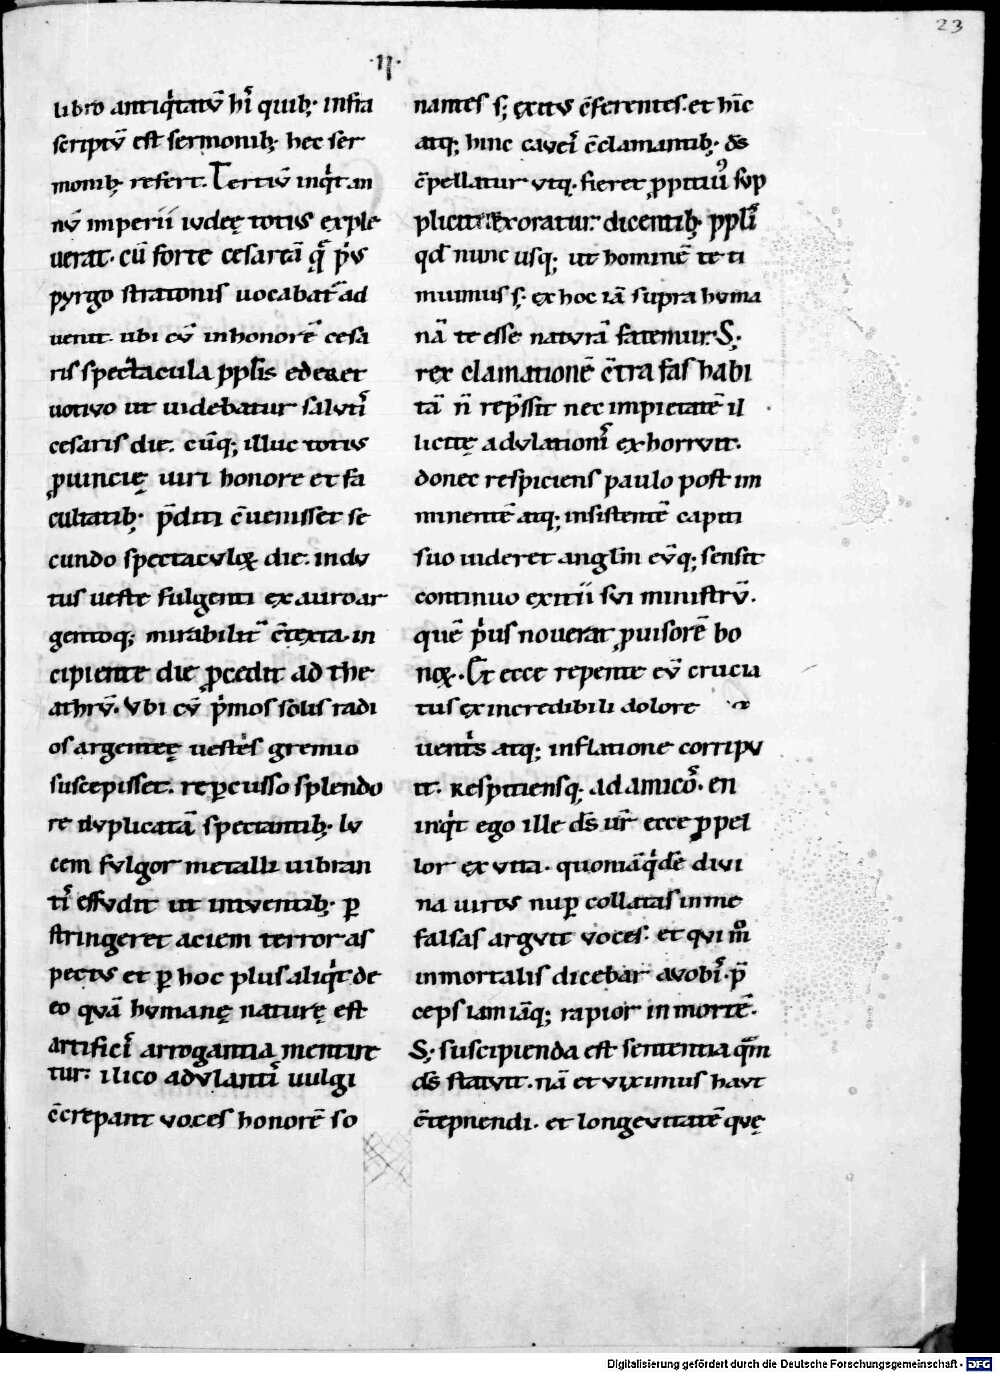 23
·II·
libro antiq͛tatū hı̄ quib; infra
scriptū est sermonib; hec ser
monib; refert. Tertiū inq͛t. an
nū imperii iudeę totius exple
uerat. cū forte cesareā q̄ p͛us
pyrgo stratonis uocabat̄ ad
uenit. ubi cū in honorē cesa
ris spectacula pp̄lis ederet
uotiuo ut uidebatur salutı̄
cesaris die. cūq; illuc totius
ꝓuincię uiri honore et fa
cultatib; p̄diti c̄uenisset se
cundo spectaculoꝝ die. indu
tus ueste fulgenti ex auro ar
gentoq; mirabilit̄ c̄texta. in
cipiente die ꝓcedit ad the
athrū. Vbi cū p͛mos solis radi
os argenteę uestis gremio
suscepisset. reꝑcusso splendo
re duplicatā spectantib; lu
cem fulgor metalli uibran
tı̄ effudit ut intuentib; ꝑ
stringeret aciem terror as
pectus et ꝑ hoc plus aliq͛t de
eo quā humanę naturę est
artificı̄ arrogantia mentire
tur. ilico adulantı̄ uulgi
c̄crepant uoces honorē so
nantes s; exitus c̄ferentes. et hı̄c
atq; hinc caueı̄ c̄clamantib; dS̄
c̄pellatur utq. fieret ꝓpitiuꝰ sup
pliciter exoratur. dicentib; pplı̄
qd̄ nunc usq; ut hominē te ti
muimus s; ex hoc iā supra huma
nā te esse naturā fatemur. S;
rex clamationē c̄tra fas habi
tā n̄ rep̄ssit nec impietatē il
licitę adulationı̄ exhorruit.
donec respiciens paulo post im
minentē atq; insistentē capiti
suo uideret anglm̄ eūq; sensit
continuo exitii sui ministrū.
quē p͛us nouerat ꝓuisorē bo
noꝝ. Et ecce repente eū crucia
tus ex incredibili dolore
uent͛s atq; inflatione corripu
it. Respitiensq; ad amicō. en
inq͛t ego ille ds̄ ur̄ ecce ꝓpel
lor ex uita. quoniāq͛dē diui
na uirtus nuꝑ collatas in me
falsas arguit uoces. et qui m̊
inmortalis dicebar a uobı̄. p̄
ceps iam iāq; rapior in mortē.
S; suscipienda est sententia qm̄
ds̄ statuit. nā et uiximus haut
c̄tepnendi. et longeuitatē quę
Digitalisierung gefördert durch die Deutsche Forschungsgemeinschaft - DFG